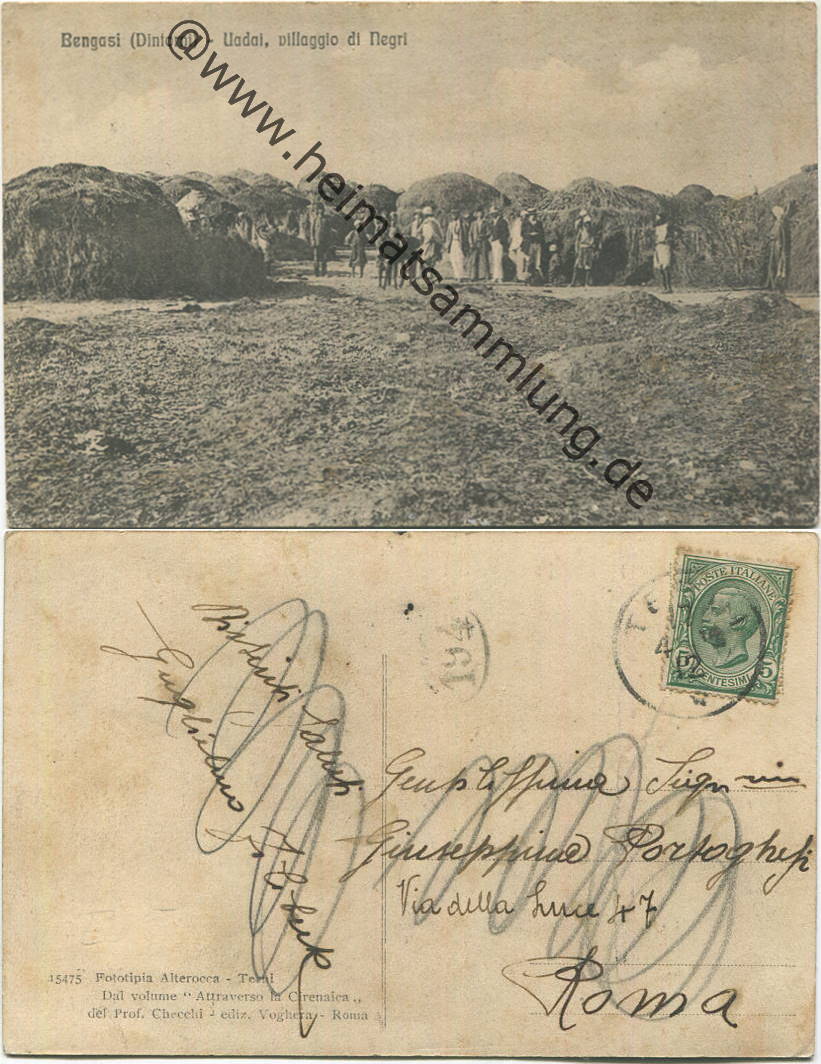 Bengasi (Dintorni) - Uadai, villaggio di Negri
@www.heimatsammlung.de
POSTE ITALIANE
5 CENTESIMI 5
194
Distinti Saluti
Guglielmo
Gentilissima Sign
Giuseppina Portoghesi
Via della Luce 47
Roma
15475 Fototipia Alterocca - Terni
Dal volume "Attraverso la Cirenaica„
del Prof. Checchi - ediz. Voghera - Roma